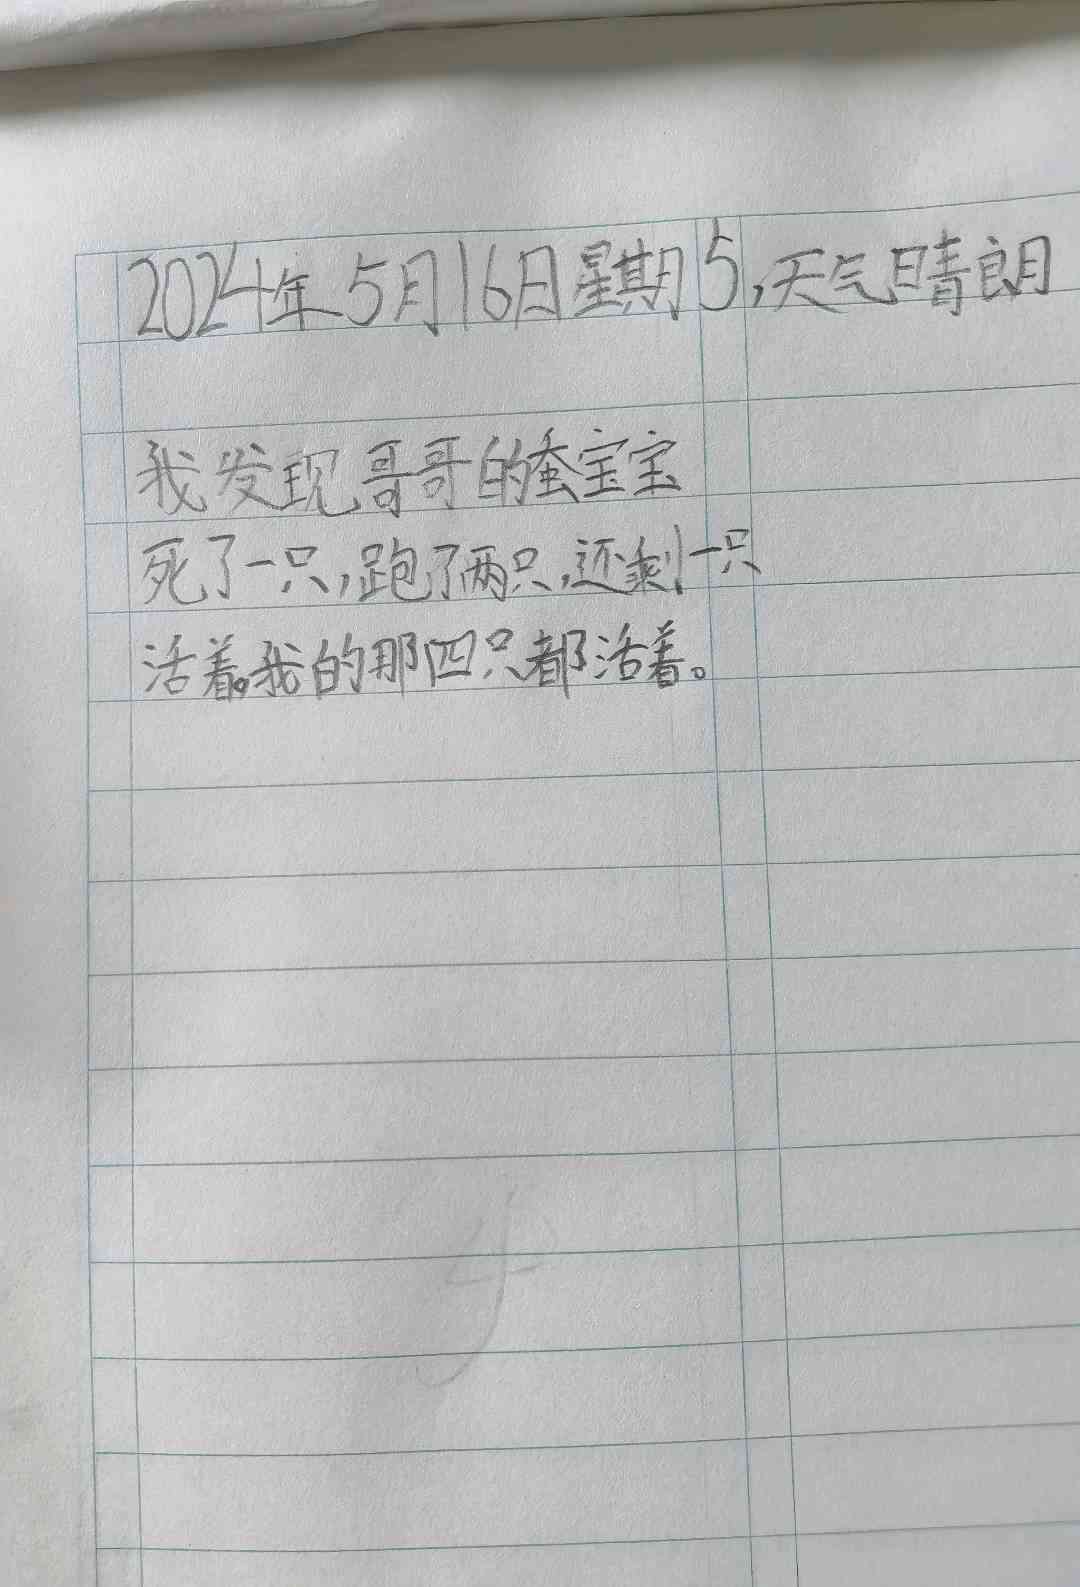 2024年5月16日星期5,天气晴朗
我发现哥哥的蚕宝宝
死了一只,跑了两只,还剩一只
活着。我的那四只都活着。